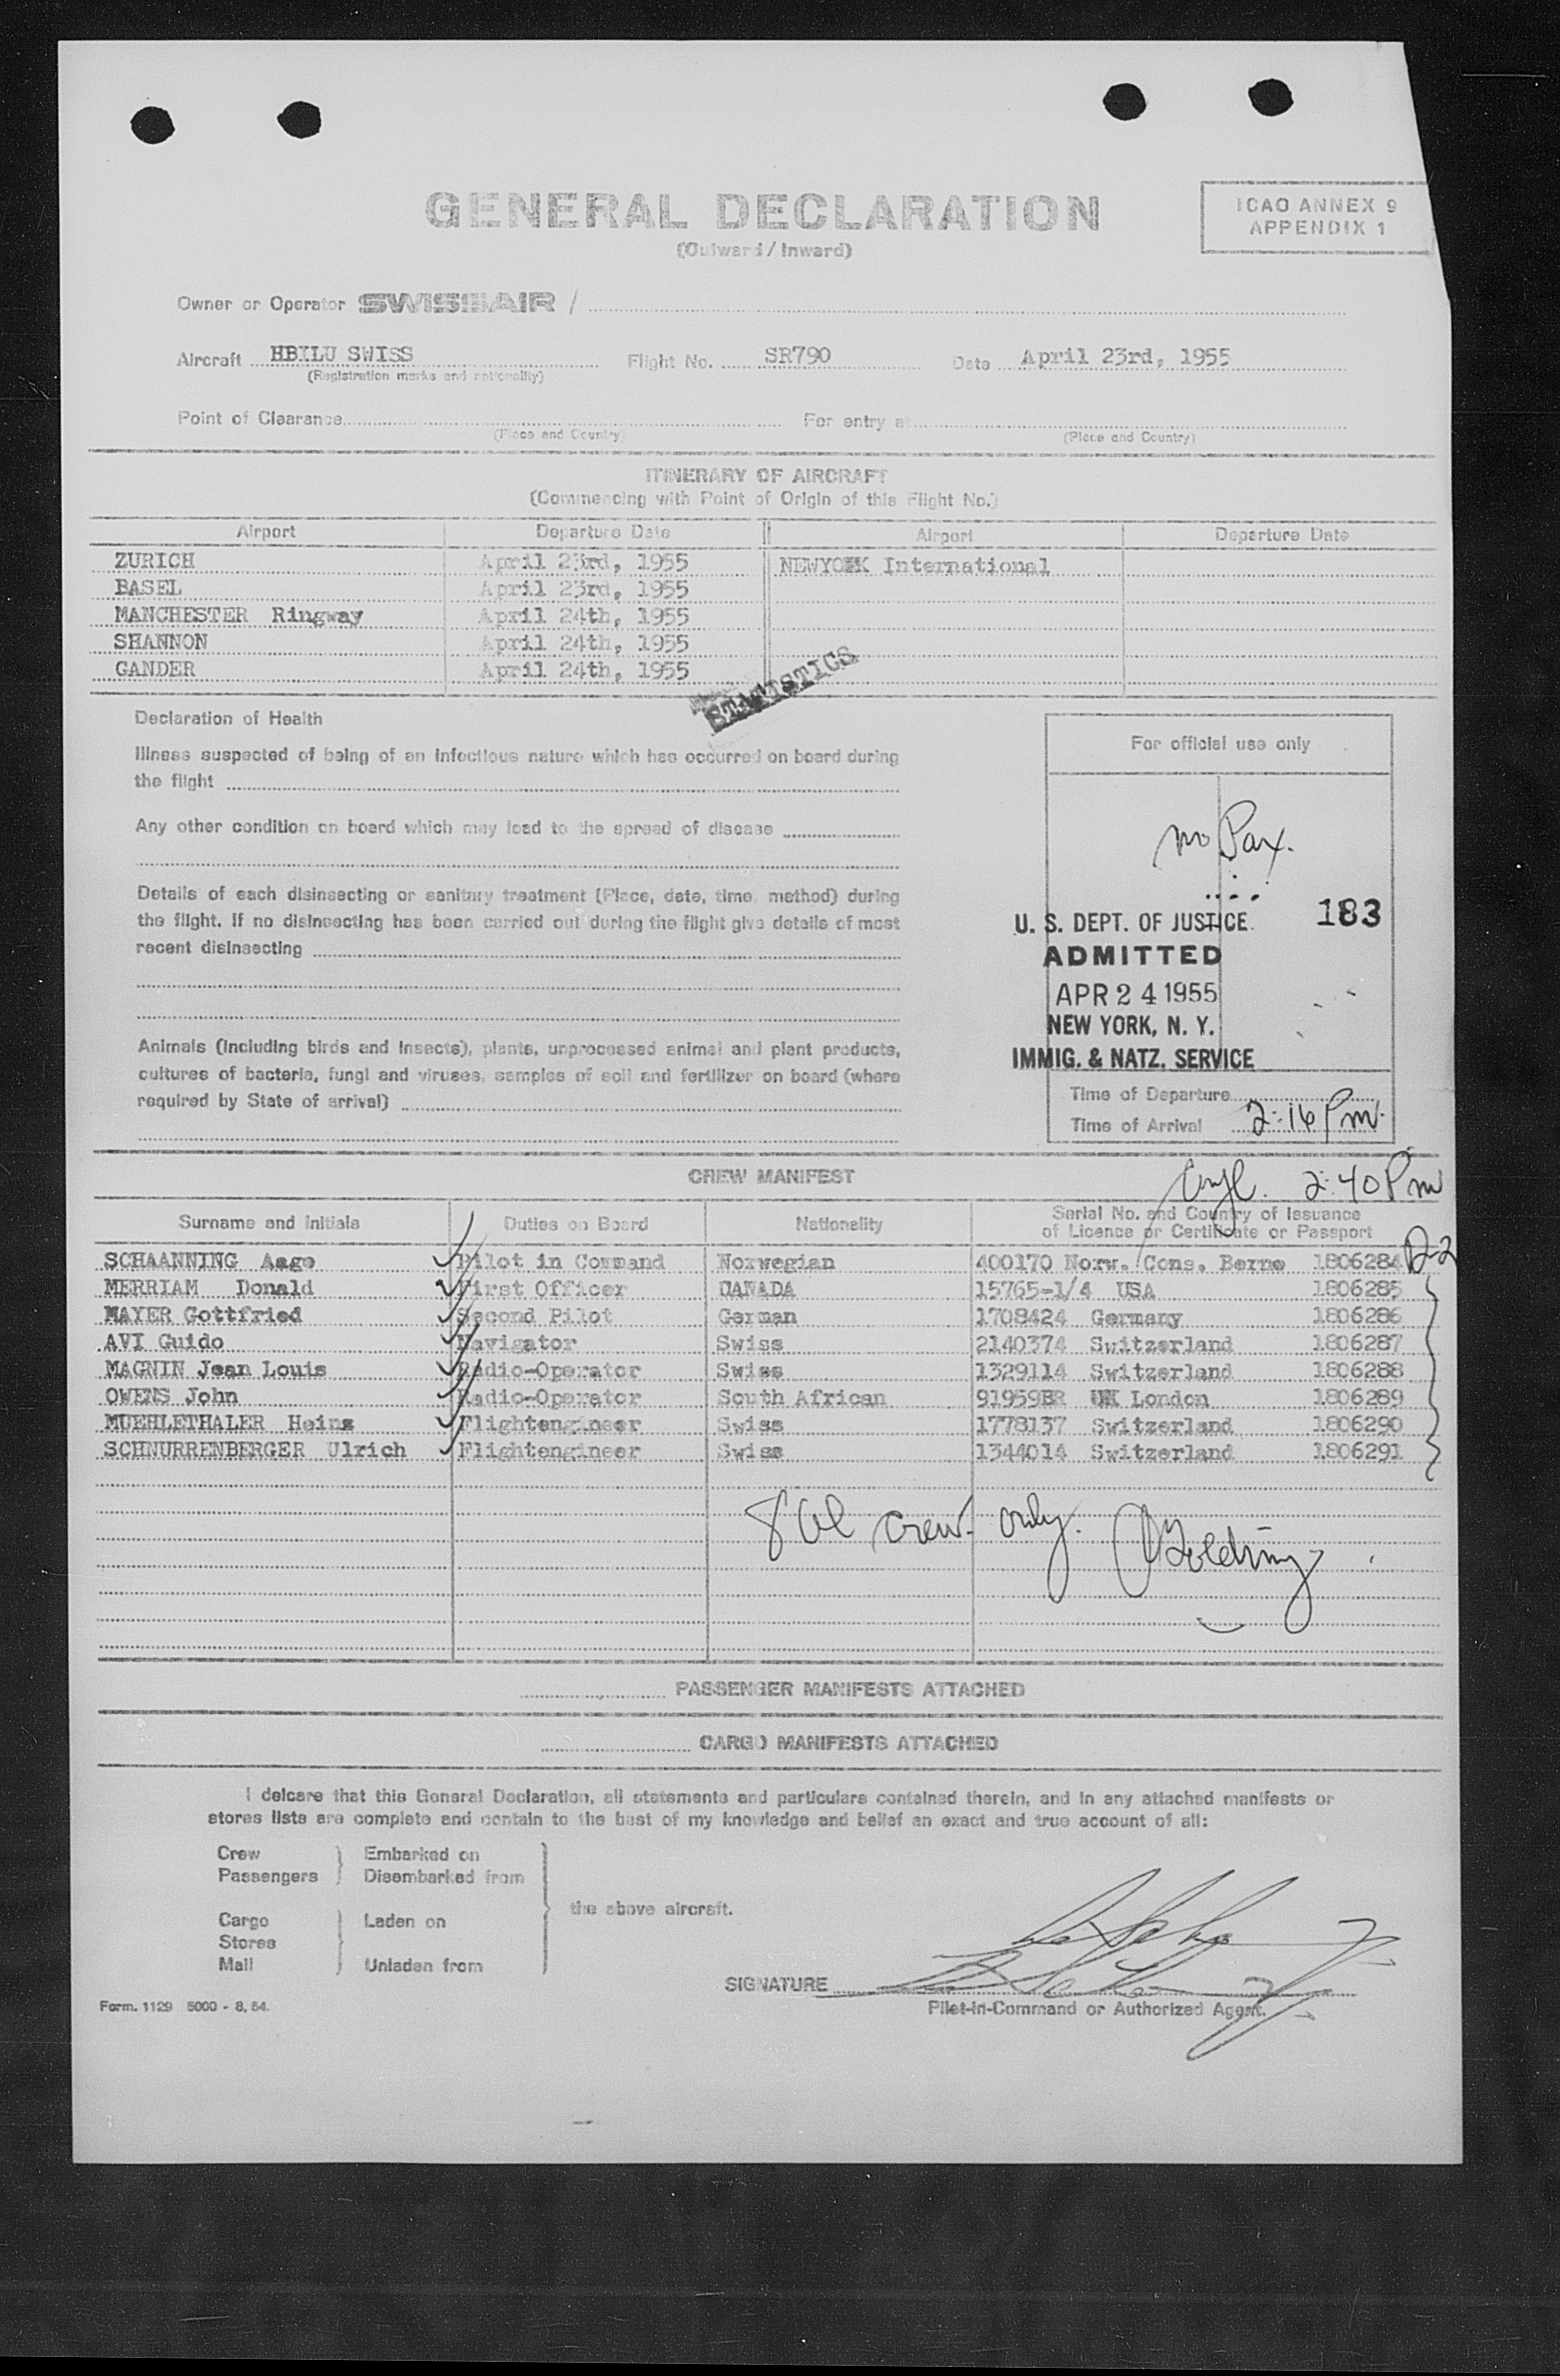 GENERAL DECLARATION
(Outward / Inward)
ICAO ANNEX 9
APPENDIX 1
Owner or Operator SWISSAIR /
Aircraft HBILU SWISS Flight No. SR790 Date April 23rd, 1955
(Registration marks and nationality)
Point of Clearance For entry at
(Place and Country) (Place and Country)
ITINERARY OF AIRCRAFT
(Commencing with Point of Origin of this Flight No.)
Airport Departure Date Airport Departure Date
ZURICH April 23rd, 1955 NEWYORK International
BASEL April 23rd, 1955
MANCHESTER Ringway April 24th, 1955
SHANNON April 24th, 1955
GANDER April 24th, 1955
STATISTICS
Declaration of Health
Illness suspected of being of an infectious nature which has occurred on board during
the flight
Any other condition on board which may lead to the spread of disease
Details of each disinsecting or sanitary treatment (Place, date, time, method) during
the flight. If no disinsecting has been carried out during the flight give details of most
recent disinsecting
Animals (including birds and insects), plants, unprocessed animal and plant products,
cultures of bacteria, fungi and viruses, samples of soil and fertilizer on board (where
required by State of arrival)
For official use only
no Pax.
U. S. DEPT. OF JUSTICE 183
ADMITTED
APR 24 1955
NEW YORK, N. Y.
IMMIG. & NATZ. SERVICE
Time of Departure
Time of Arrival 2:16 Pm.
CREW MANIFEST
2:40 Pm
Surname and initials Duties on Board Nationality Serial No. and Country of Issuance
of Licence or Certificate or Passport
SCHAANNING Aage Pilot in Command Norwegian 400170 Norw. Cons. Berne 1806284 D-2
MERRIAM Donald First Officer CANADA 15765-1/4 USA 1806285
MAYER Gottfried Second Pilot German 1708424 Germany 1806286
AVI Guido Navigator Swiss 2140374 Switzerland 1806287
MAGNIN Jean Louis Radio-Operator Swiss 1329114 Switzerland 1806288
OWENS John Radio-Operator South African 91959BR UK London 1806289
MUEHLETHALER Heinz Flightengineer Swiss 1778137 Switzerland 1806290
SCHNURRENBERGER Ulrich Flightengineer Swiss 1344014 Switzerland 1806291
8 crew only. Golding
PASSENGER MANIFESTS ATTACHED
CARGO MANIFESTS ATTACHED
I delcare that this General Declaration, all statements and particulars contained therein, and in any attached manifests or
stores lists are complete and contain to the best of my knowledge and belief an exact and true account of all:
Crew Embarked on
Passengers Disembarked from
the above aircraft.
Cargo Laden on
Stores
Mail Unladen from
SIGNATURE
Pilot-in-Command or Authorized Agent.
Form. 1129 5000 - 8. 54.